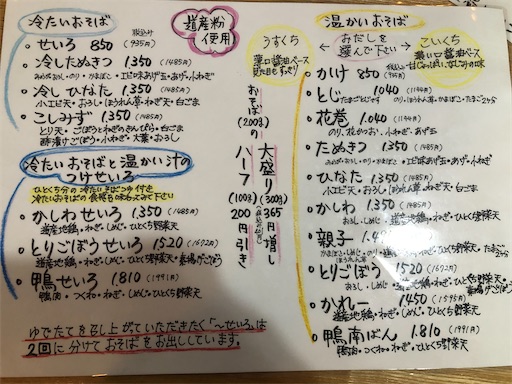 冷たいおそば
税込み
・せいろ 850 (935円)
・冷したぬきつ 1.350 (1485円)
・冷し ひなた 1.350 (1485円)
小エビ天・おろし・ほうれん草・ねぎ天・白ごま
・こしみず 1.350 (1485円)
とり天・ごぼうとねぎのきんぴら・白ごま
酢漬けごぼう・小ねぎ・大葉・おろし
冷たいおそばと温かい汁の
つけせいろ
ひとくち分の冷たいおそばつゆ付き
冷たいおそばの食感も味わってみて下さい
・かしわせいろ 1.350 (1485円)
道産地鶏・ねぎ・しめじ・ひとくち野菜天
・とりごぼうせいろ 1520 (1672円)
道産地鶏・ねぎ・しめじ・ひとくち野菜天・素揚げごぼう
・鴨せいろ 1.810 (1991円)
鴨肉・つくね・ねぎ・しめじ・ひとくち野菜天
ゆでたてを召し上がっていただきたく「〜せいろ」は
2回に分けておそばをお出ししています。
道産粉
使用
おそば(200g)の
大盛り(300g) 365円増し
ハーフ(100g) 200円引き
温かいおそば
おだしを
選んで下さい
うすくち
薄口醤油ベース
見た目もすっきり
こいくち
濃い口醤油ベース
甘じょっぱい、なじみの味
・かけ 850 (935円)
・とじ 1040 (1144円)
たまごとじです のり・ほうれん草・かまぼこ・たまご2コ分
・花巻 1.040 (1144円)
のり、花かつお、小ねぎ・あげ玉
・たぬきつ 1.350 (1485円)
・ひなた 1.350 (1485円)
小エビ天・おろし・ほうれん草・ねぎ天・白ごま
・かしわ 1.350 (1485円)
おろし・しめじ 道産地鶏・ねぎ・ひとくち野菜天
・親子
・とりごぼう 1520 (1672円)
・かれー 1.450 (1595円)
道産地鶏・ねぎ・しめじ・ひとくち野菜天
・鴨南ばん 1.810 (1991円)
鴨肉・つくね・ねぎ・しめじ・ひとくち野菜天